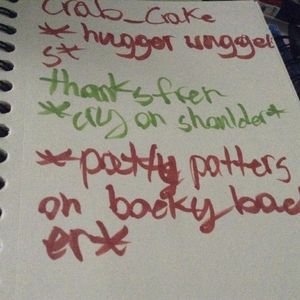 Crab_Crake
* hugger wugger
s*
thanks fren
*cry on shoulder*
*patty patters
on backy back
er*